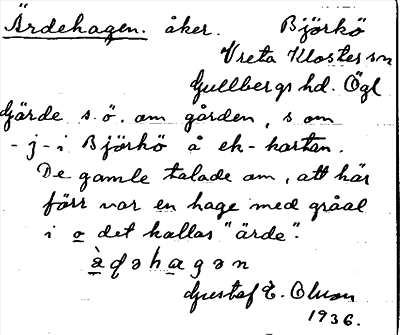 Ärdehagen. åker. Björkö
Vreta Klosters sn
Gullbergs hd. Ögl
Gärde s.ö. om gården, som
-j- i Björkö å ek-kartan.
De gamle talade om, att här
förr var en hage med gråal
i o det kallas "ärde".
Gustaf E. Olson
1936.